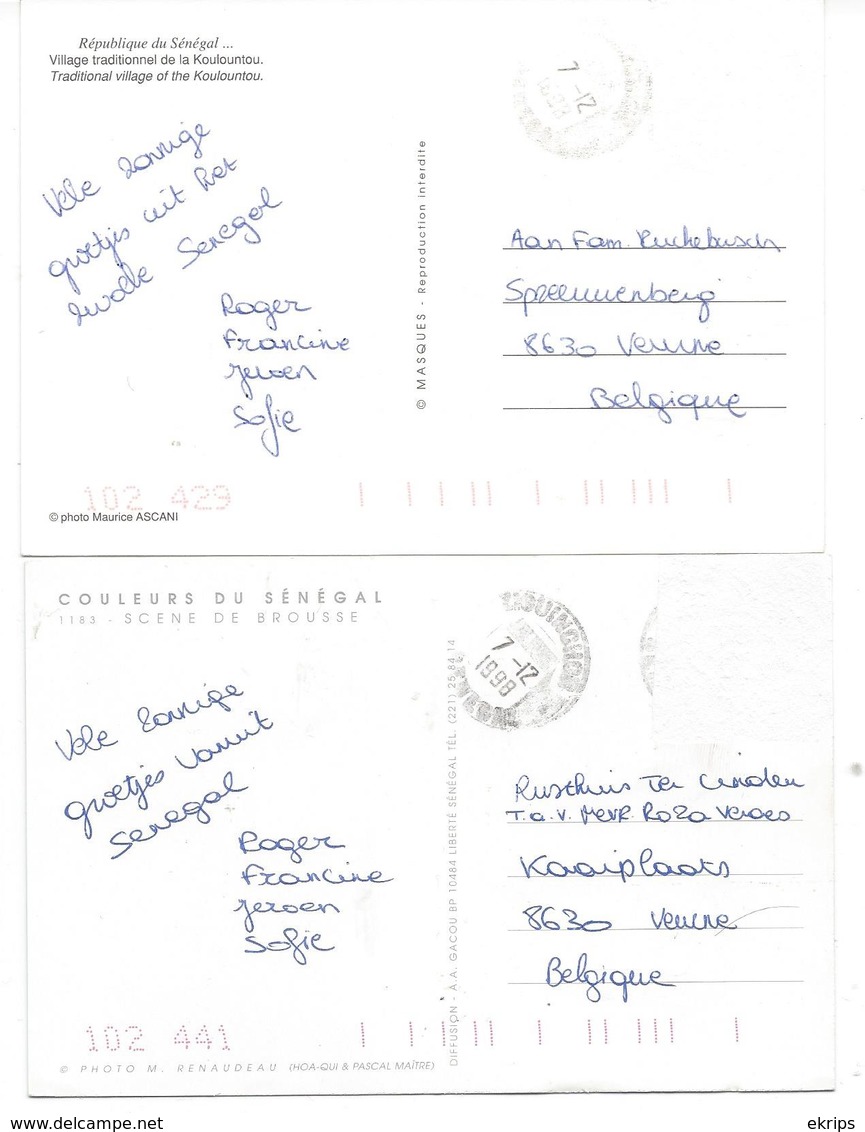 République du Sénégal ...
Village traditionnel de la Koulountou.
Traditional village of the Koulountou.
7-12
1998
Vele zonnige
groetjes uit het
zwoele Senegal
Roger
Francine
Jeroen
Sofie
© MASQUES - Reproduction interdite
Aan Fam. Ruckebusch
8630 Veurne
Belgique
102 429
© photo Maurice ASCANI
COULEURS DU SÉNÉGAL
1183 - SCENE DE BROUSSE
7-12
1998
Vele zonnige
groetjes vanuit
Senegal
Roger
Francine
Jeroen
Sofie
DIFFUSION - A.A. GACOU BP 10484 LIBERTÉ SÉNÉGAL TÉL. (221) 25 84 14
Rusthuis Ter Linden
T.a.v. Mevr. Roza
Kaaiplaats
8630 Veurne
Belgique
102 441
© PHOTO M. RENAUDEAU (HOA-QUI & PASCAL MAÎTRE)
ekrips